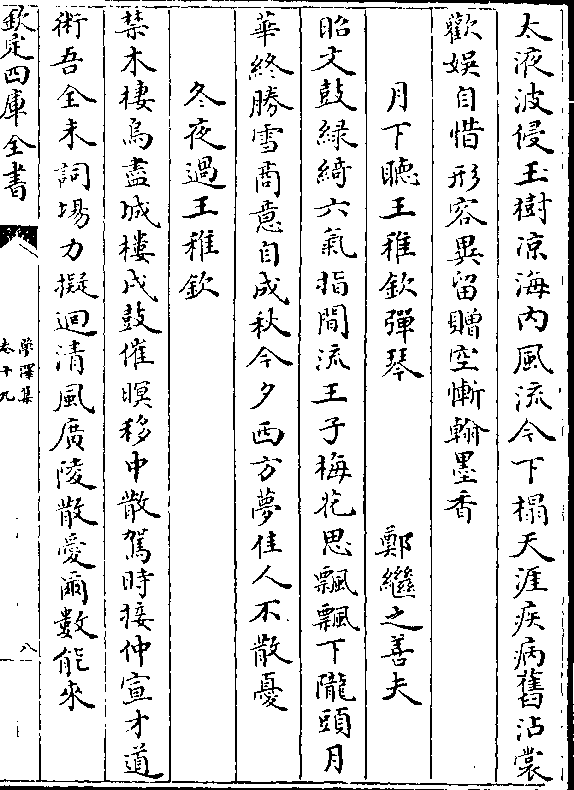 太液波侵玉樹凉海内風流今下榻天涯疾病舊沾裳
歡娯自惜形容異留贈空慚翰墨香
月下聽王稚欽彈琴
鄭繼之善夫
昭文鼓緑綺六氣指間流王子梅花思飄飄下隴頭月
華終勝雪商意自成秋今夕西方夢佳人不散憂
冬夜過王稚欽
禁木棲烏盡城樓戍鼓催暝移中散駕時接仲宣才道
術吾全未詞塲力擬迴清風廣陵散愛爾數能來
欽定四庫全書
夢澤集
卷十九
八